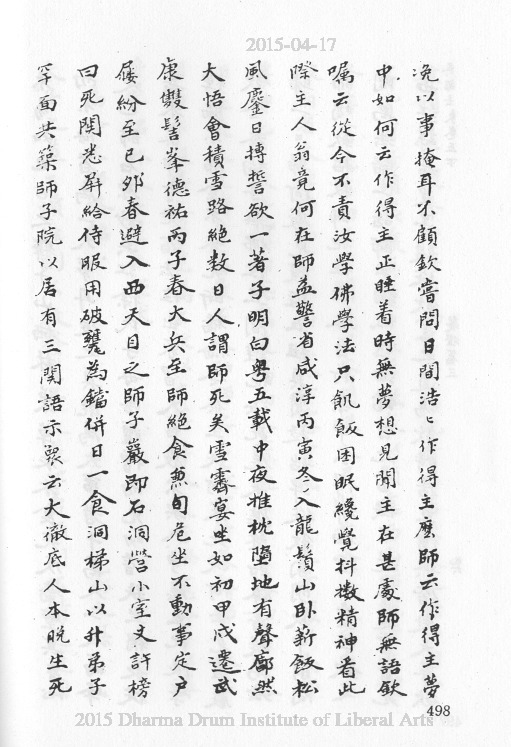 2015-04-17
浼以事掩耳不顧欽嘗問日間浩〻作得主麼師云作得主夢
中如何云作得主正睡着時無夢想見聞主在甚處師無語欽
囑云從今不責汝學佛學法只飢飯困眠纔覺抖擻精神看此
際主人翁竟何在師益警省咸淳丙寅冬入龍鬚山卧薪飯松
風鏖日摶誓欲一著子明白粤五載中夜推枕墮地有聲廓然
大悟會積雪路絶数日人謂師死矣雪霽宴坐如初甲戌遷武
康雙髻峯德祐丙子春大兵至師絶食兼旬危坐不動事定户
屨紛至己夘春避入西天目之師子巖即石洞營小室丈許榜
曰死関悉屏給侍服用破甕為鐺併日一食洞梯山以升弟子
罕面共築師子院以居有三関語示衆云大徹底人本脫生死
498
2015 Dharma Drum Institute of Liberal Arts